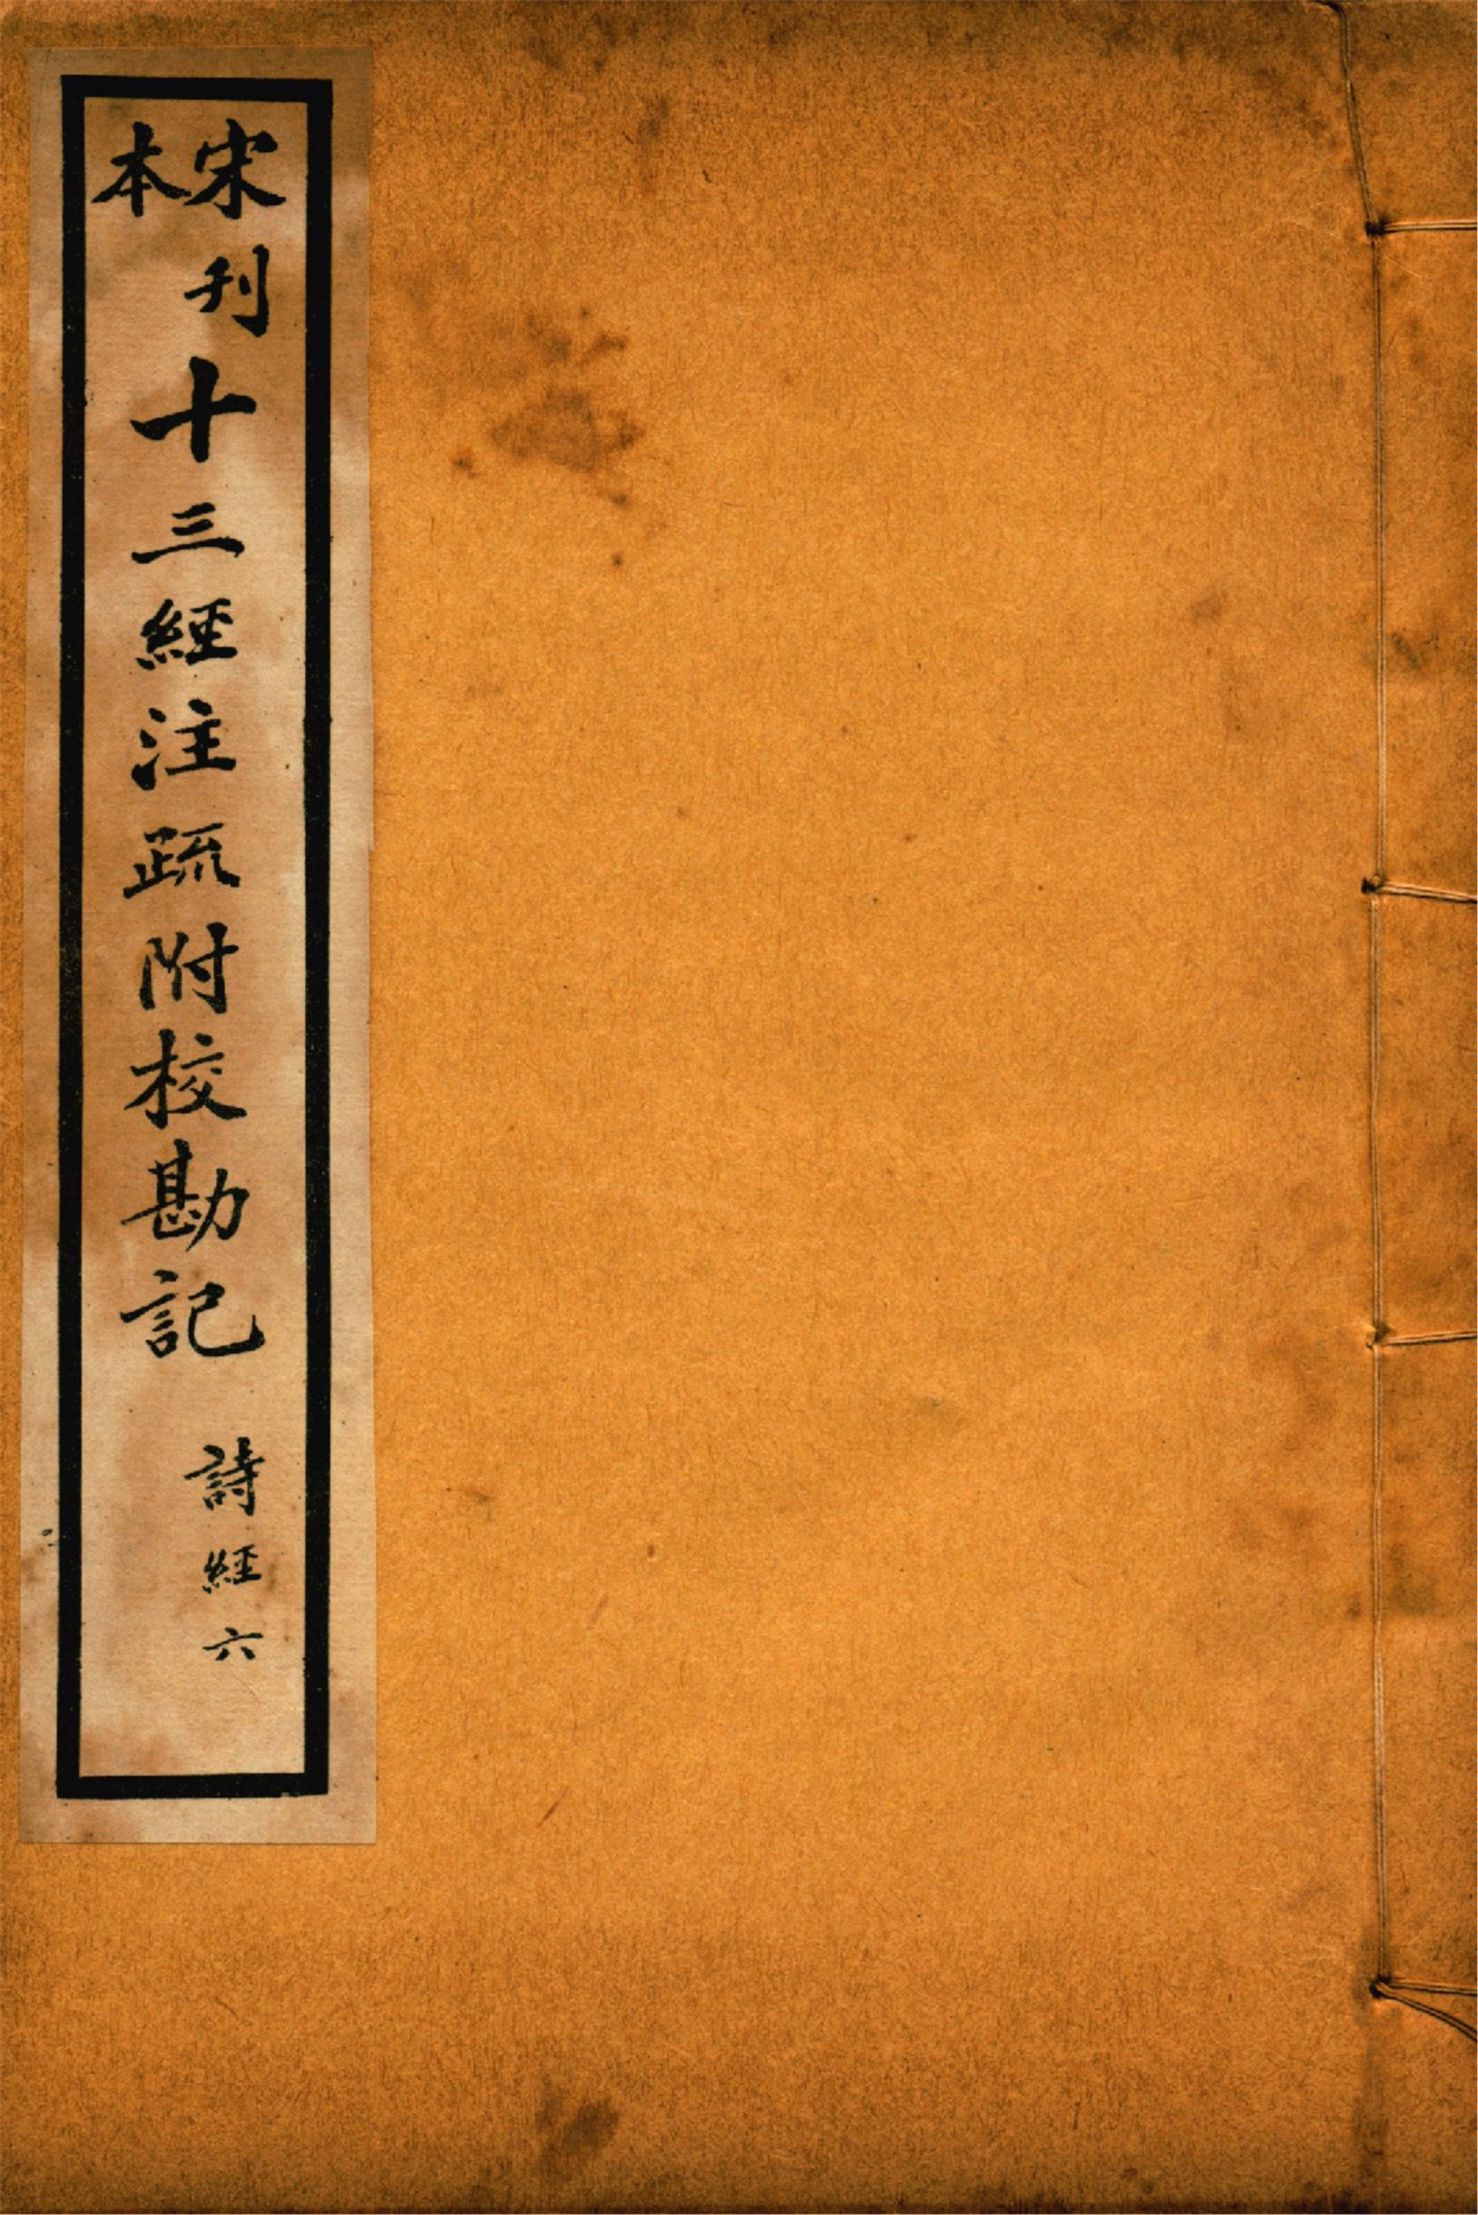 宋刊本十三經注疏附校勘記
詩經六